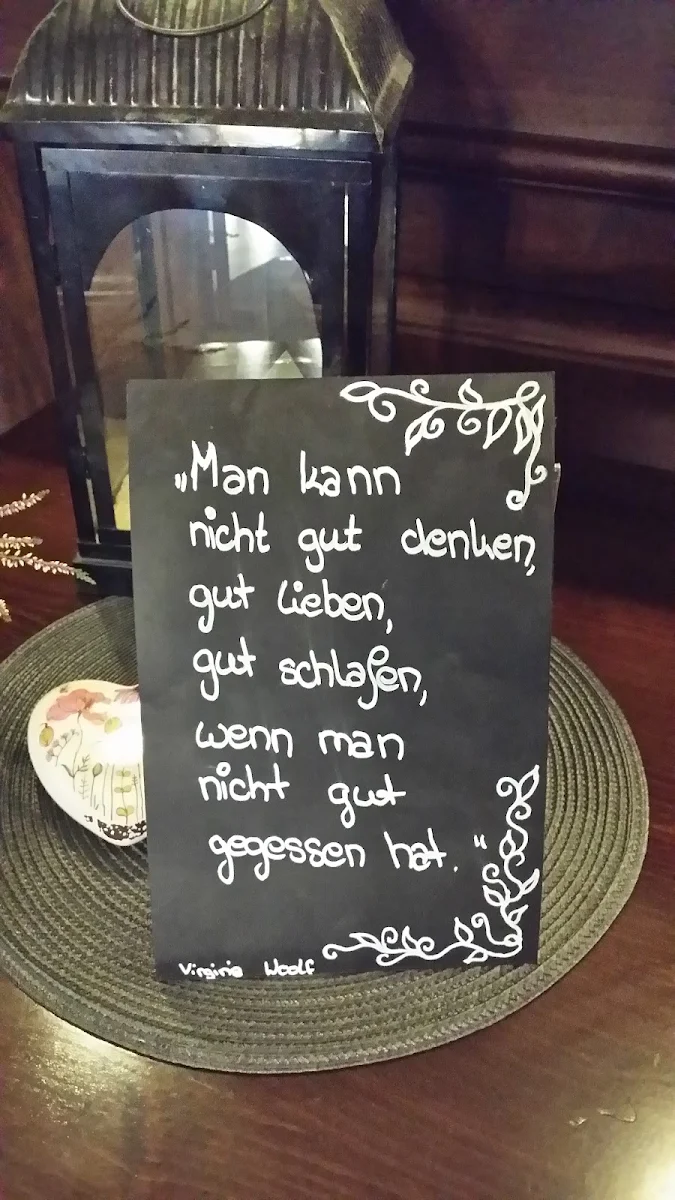 „Man kann
nicht gut denken,
gut lieben,
gut schlafen,
wenn man
nicht gut
gegessen hat.“
Virginia Woolf